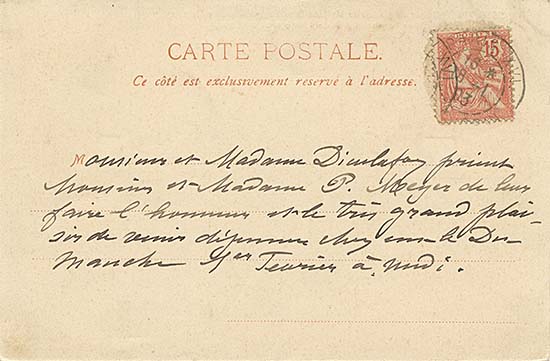 CARTE POSTALE.
Ce côté est exclusivement reservé à l'adresse.
15
Monsieur et Madame Dieulafoy prient
Monsieur et Madame P. Meyer de leur
faire l'honneur et le très grand plai-
sir de venir déjeuner chez eux le Di-
manche 1er Fevrier à midi.